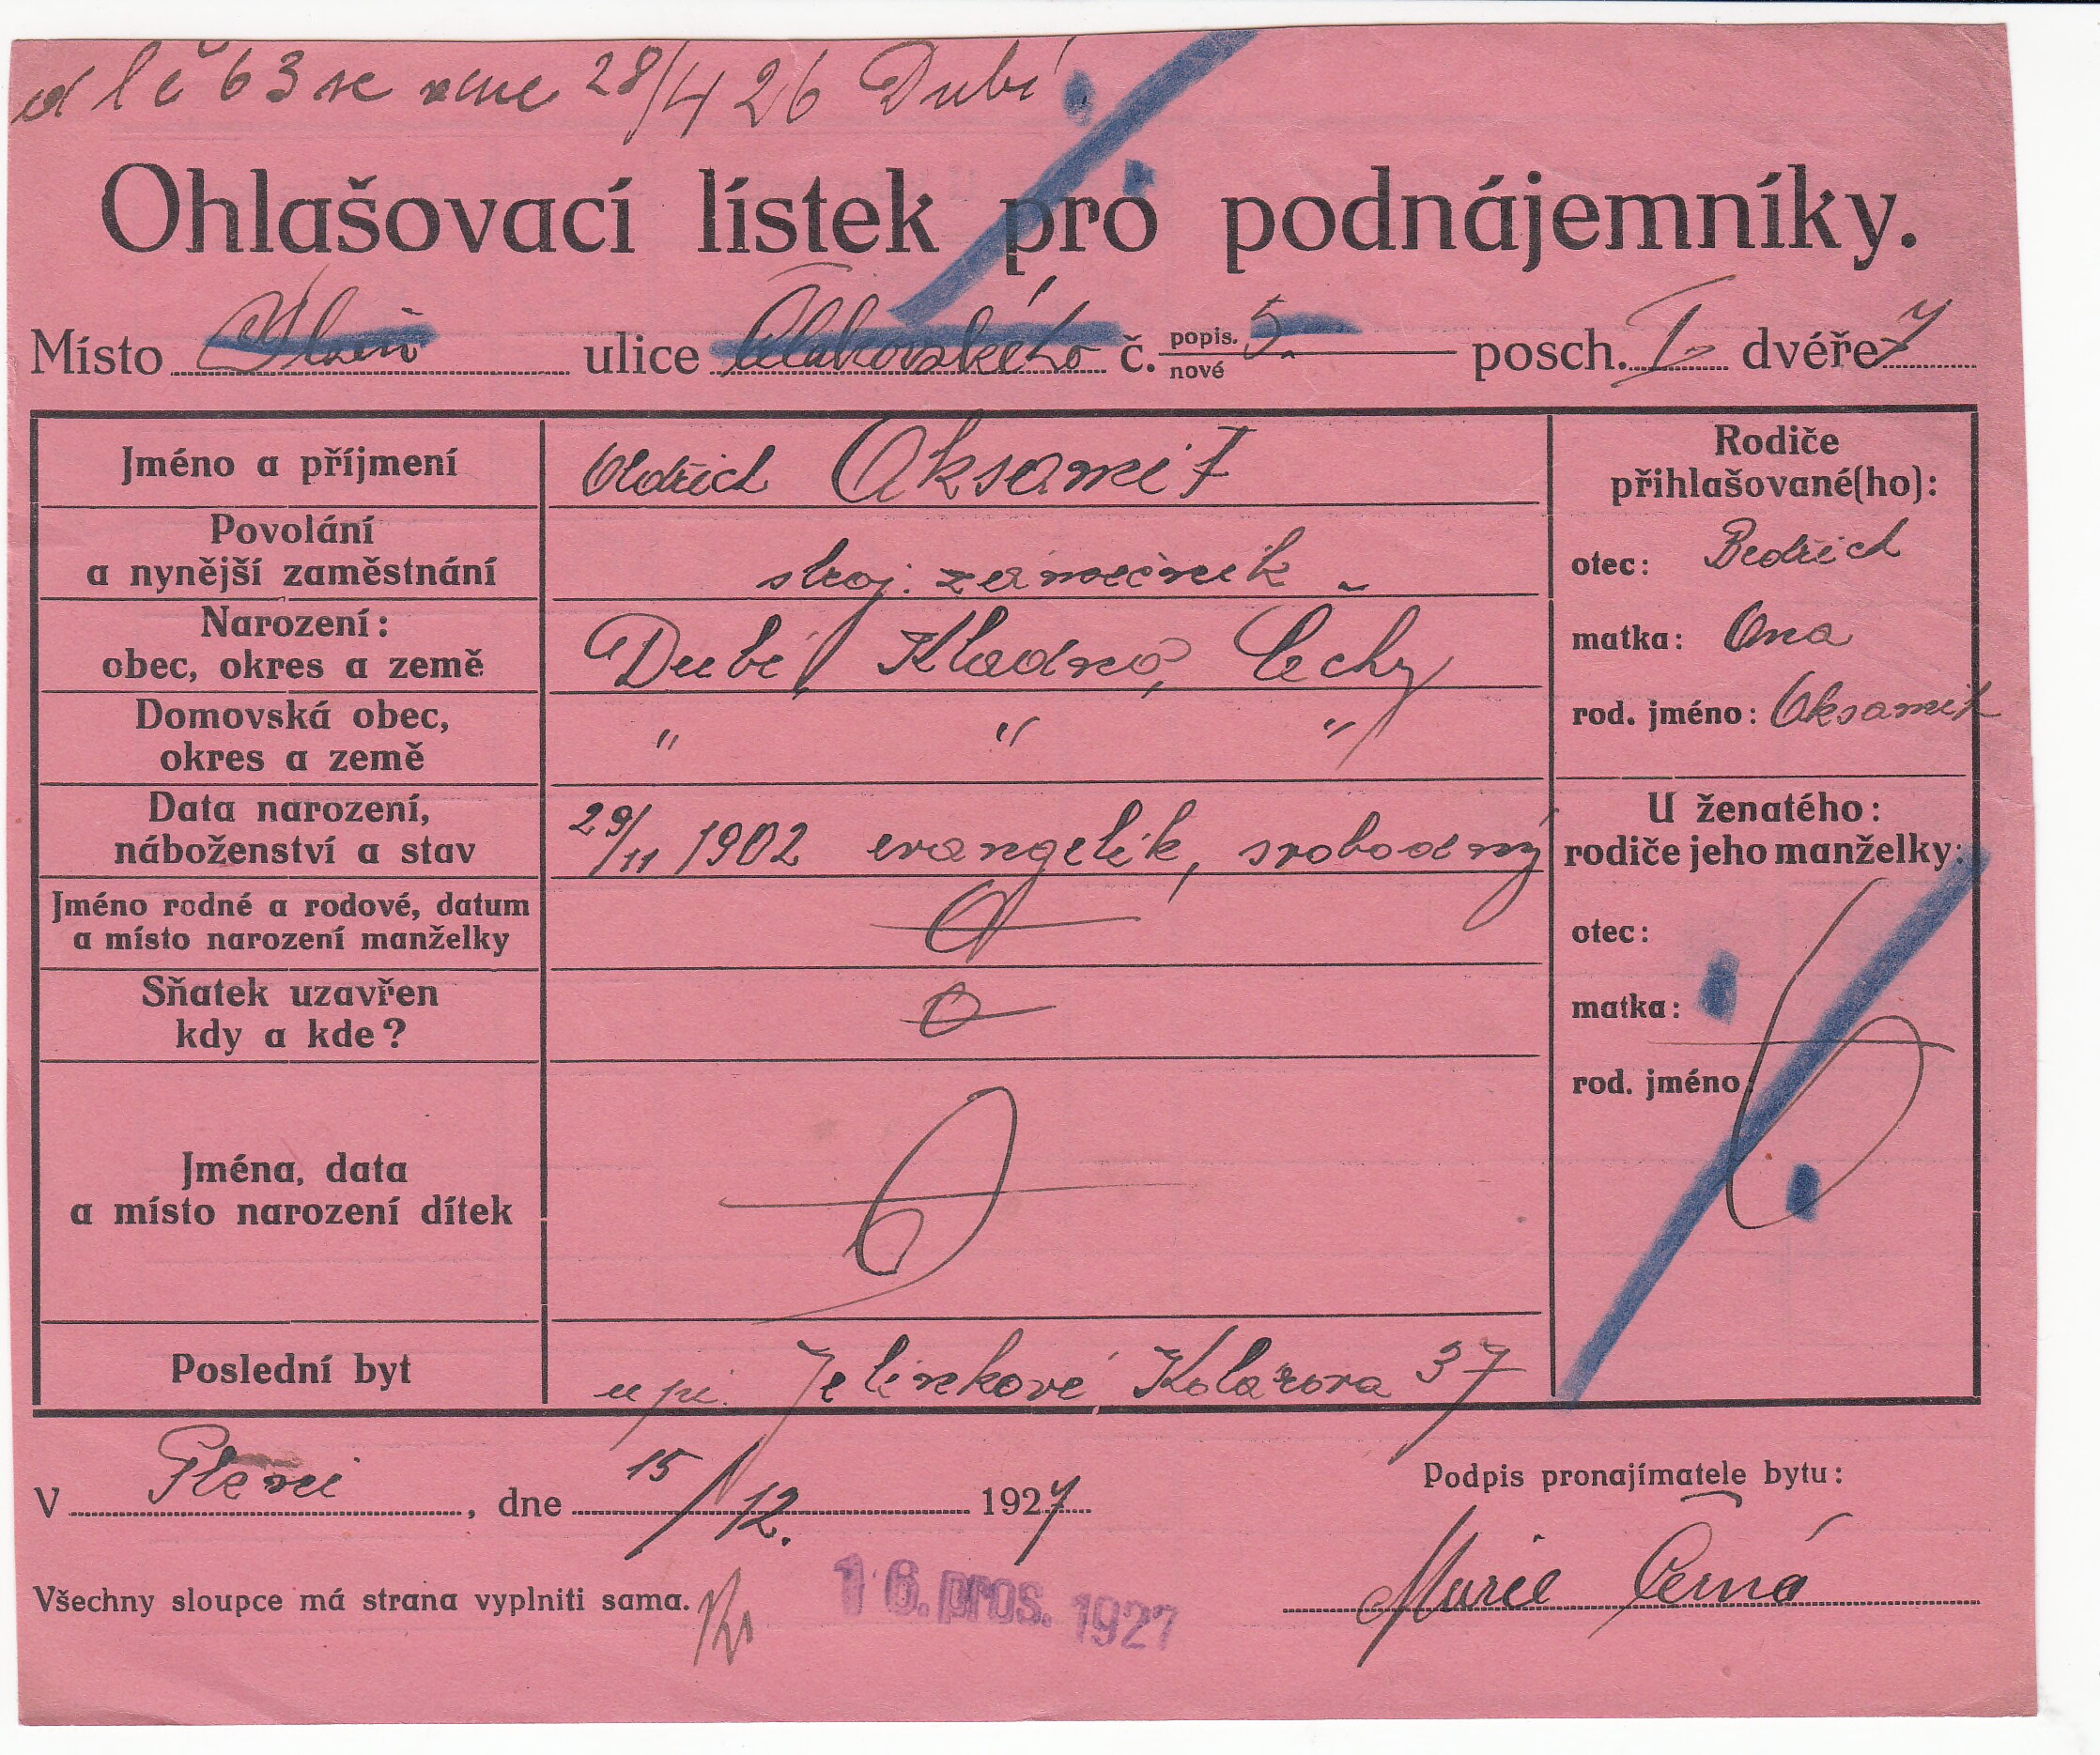 č 63 28/4 26 Dubí
Ohlašovací lístek pro podnájemníky.
Místo Plzeň ulice Čelakovského č. popis. nové 5. posch. I. dvéře 7
Jméno a příjmení Oldřich Aksamit
Povolání a nynější zaměstnání stroj. zámečník
Narození: obec, okres a země Dubí, Kladno, Čechy
Domovská obec, okres a země " " "
Data narození, náboženství a stav 29/11 1902 evangelik, svobodný
Jméno rodné a rodové, datum a místo narození manželky
Sňatek uzavřen kdy a kde?
Jména, data a místo narození dítek
Poslední byt u pí. Jelínkové Kolárova 37
Rodiče přihlašované(ho):
otec: Bedřich
matka: Ana
rod. jméno: Aksamit
U ženatého:
rodiče jeho manželky:
otec:
matka:
rod. jméno:
V Plzni, dne 15/12. 1927
Podpis pronajímatele bytu:
Marie Černá
Všechny sloupce má strana vyplniti sama.
16. pros. 1927